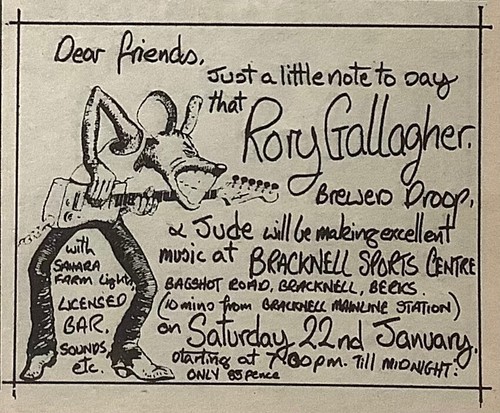 Dear friends,
Just a little note to say
that
Rory Gallagher.
Brewers Droop,
& Jude will be making excellent
music at BRACKNELL SPORTS CENTRE
BAGSHOT ROAD, BRACKNELL, BERKS.
(10 mins from BRACKNELL MAINLINE STATION)
on Saturday 22nd January,
starting at 7.30pm. Till MIDNIGHT:
ONLY 85 pence
with
SAHARA
FARM Lights,
LICENSED
BAR.
SOUNDS,
etc.